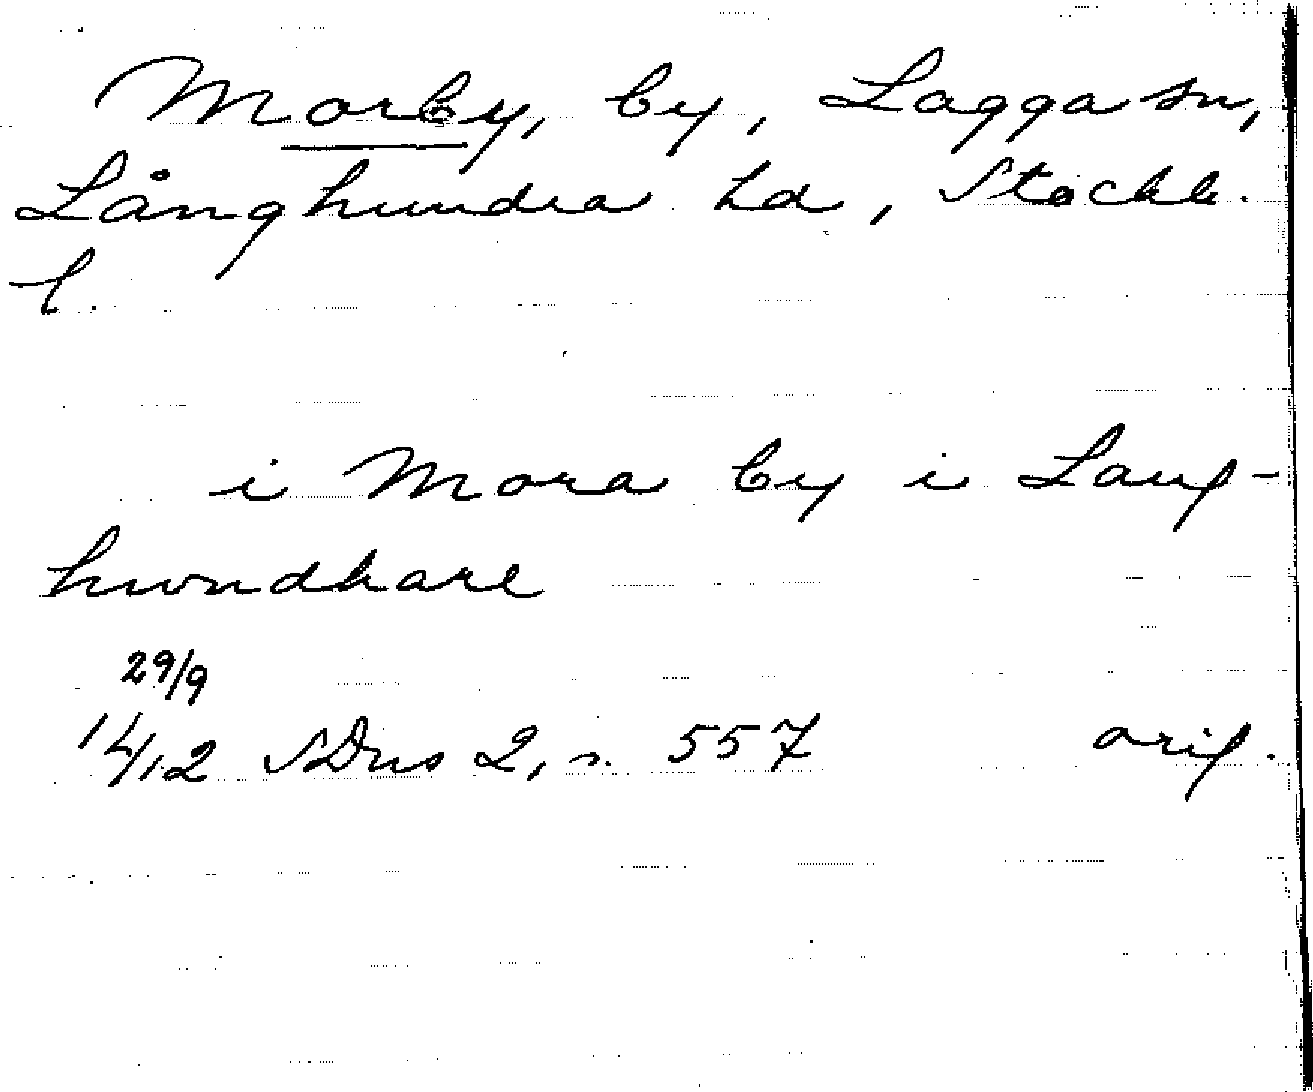 Morby, by, Lagga sn,
Långhundra hd, Stockh.
l.
i Mora by i Lang-
hwndhare
29/9
14/12 SDns 2, s. 557 orig.